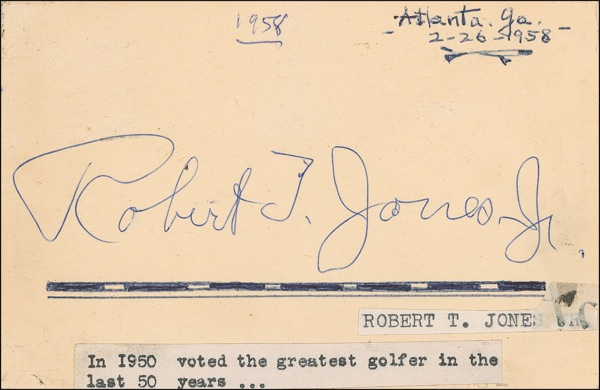 1958
Atlanta. Ga.
- 2-26-1958 -
Robert T. Jones, Jr.
ROBERT T. JONES JR.
In I950 voted the greatest golfer in the
last 50 years ...